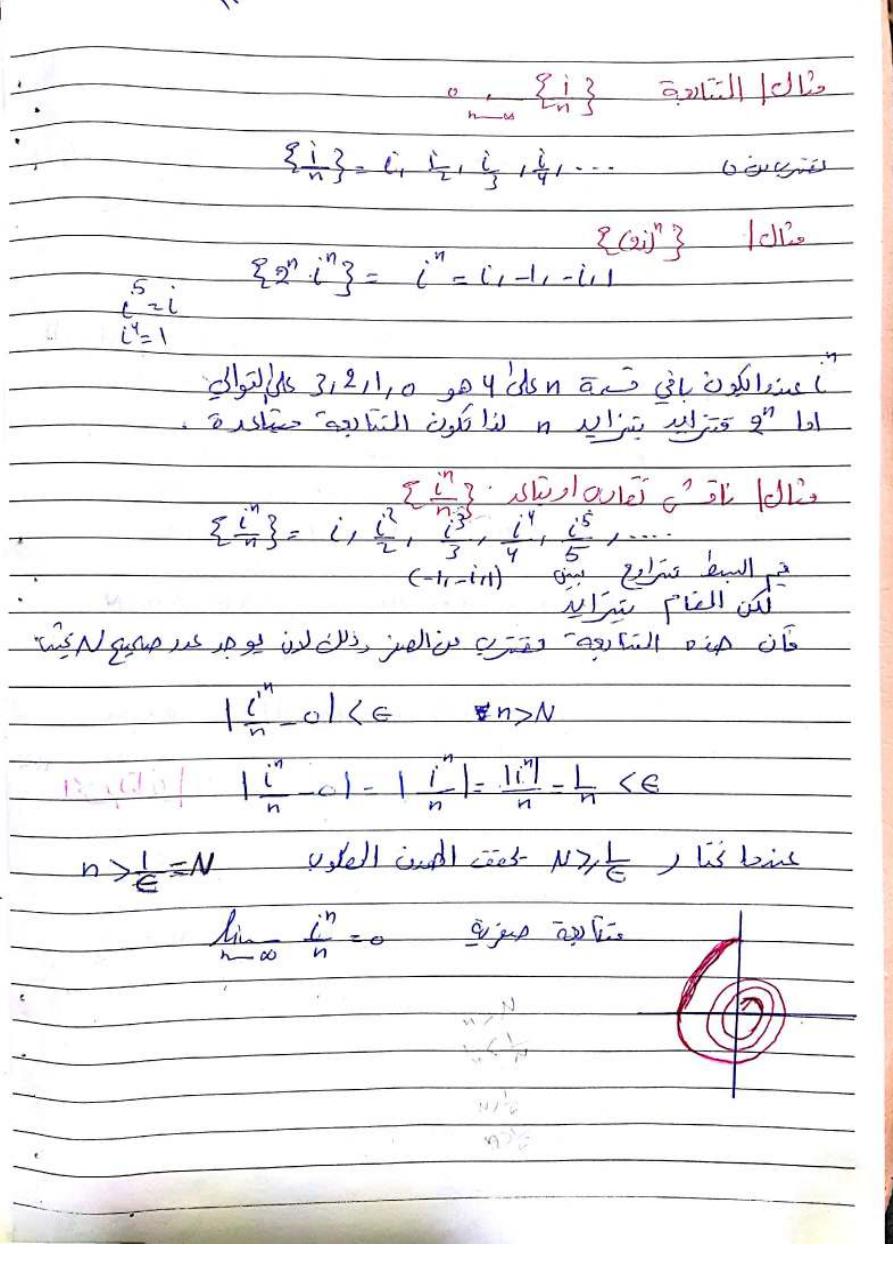 مثال | المتتابعة {i/n} n→∞ 0
{i/n} = i, i/2, i/3, i/4, ... تقترب من 0
مثال | {(2i)ⁿ}
{2ⁿ·iⁿ} = iⁿ = i, -1, -i, 1
i⁵=i
i⁴=1
iⁿ عندما يكون باقي قسمة n على 4 هو 0, 1, 2, 3 على التوالي
اما 2ⁿ فتتزايد بتزايد n لذا تكون المتتابعة متباعدة .
مثال | ناقش تقارب او تباعد {iⁿ/n}
{iⁿ/n} = i, i²/2, i³/3, i⁴/4, i⁵/5, ....
قيم البسط تتراوح بين (-1, -i, 1)
لكن المقام يتزايد
فأن هذه المتتابعة تقترب من الصفر وذلك لان يوجد عدد صحيح N بحيث
|iⁿ/n - 0| < ϵ ∀n>N
|iⁿ/n - 0| = |iⁿ/n| = |iⁿ|/n = 1/n < ϵ
عندما نختار N ≥ 1/ϵ يتحقق المطلوب n > 1/ϵ = N
متتابعة صفرية lim n→∞ iⁿ/n = 0